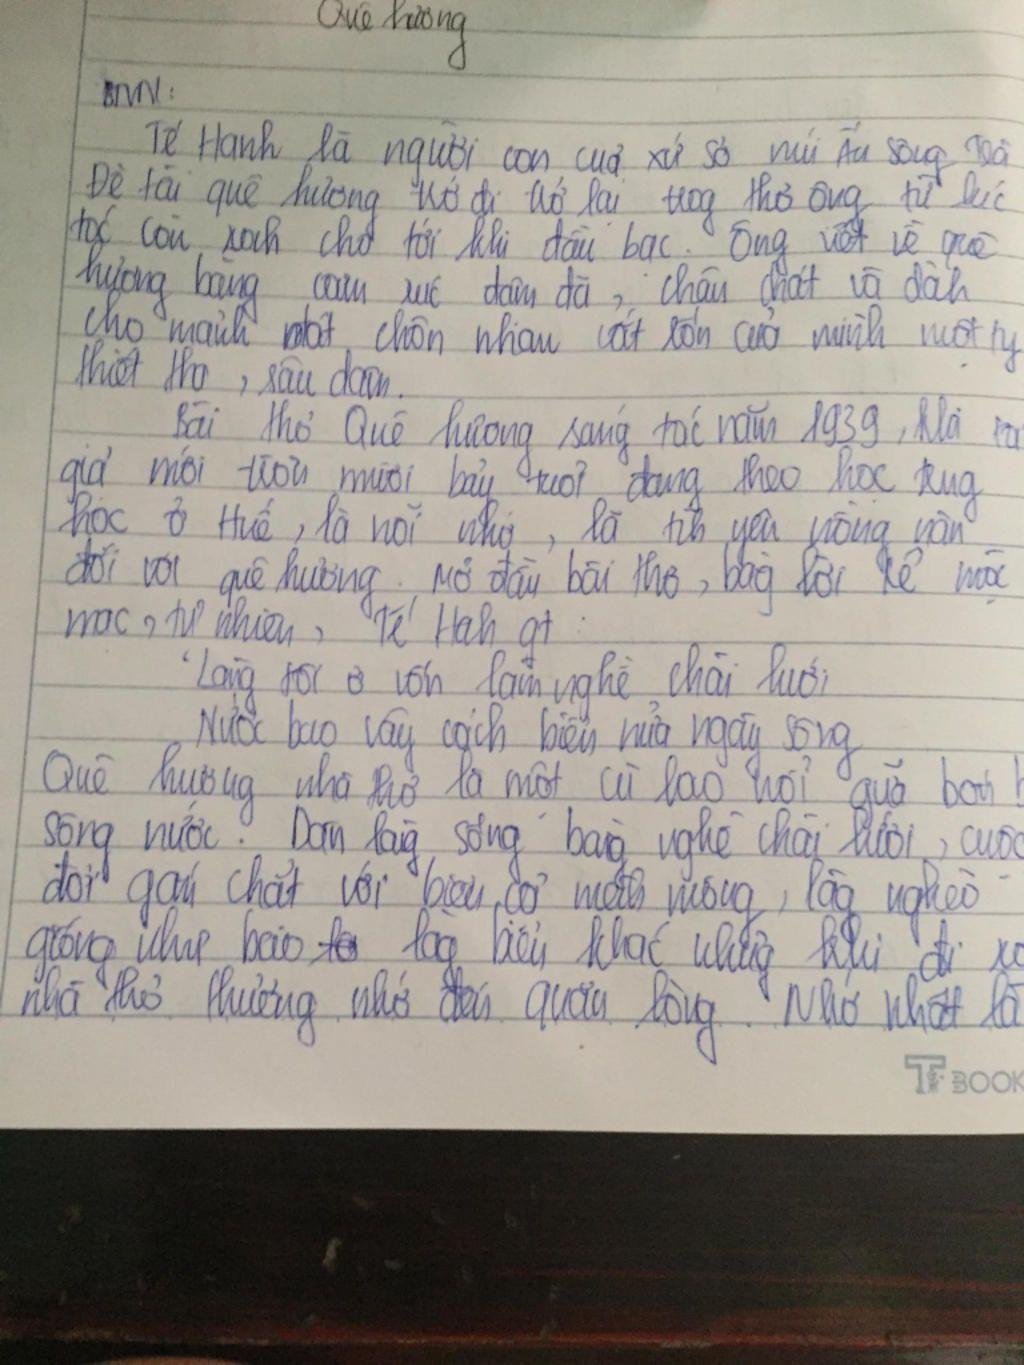 Quê hương
Tế Hanh là người con của xứ sở núi Ấn sông Trà
Đề tài quê hương trở đi trở lại trog thơ ông từ lúc
tóc còn xanh cho tới khi đầu bạc. Ông viết về quê
hương bằng cảm xúc đằm đà, chân chất và dành
cho mảnh đất chôn nhau cắt rốn của mình một ty
thiết tha, sâu đậm.
Bài thơ Quê hương sáng tác năm 1939, khi
giả mới tròn mười bảy tuổi đang theo học trug
học ở Huế, là nỗi nhớ, là tìh yêu nồng nàn
đối với quê hương. Mở đầu bài thơ, bằg lời kể mộc
mạc, tự nhiên, Tế Hah gt:
"Làng tôi ở vốn làm nghề chài lưới
Nước bao vây cách biển nửa ngày sông
Quê hương nhà thơ là một cù lao nổi giữa bốn
sông nước. Dân làg sống bằg nghề chài lưới, cuộc
đời gắn chặt với biển cả mênh mông, làg nghèo
giống như bao làg biển khác nhưg khi đi xa
nhà thơ thường nhớ đến quặn lòng. Nhớ nhất là
T BOOK